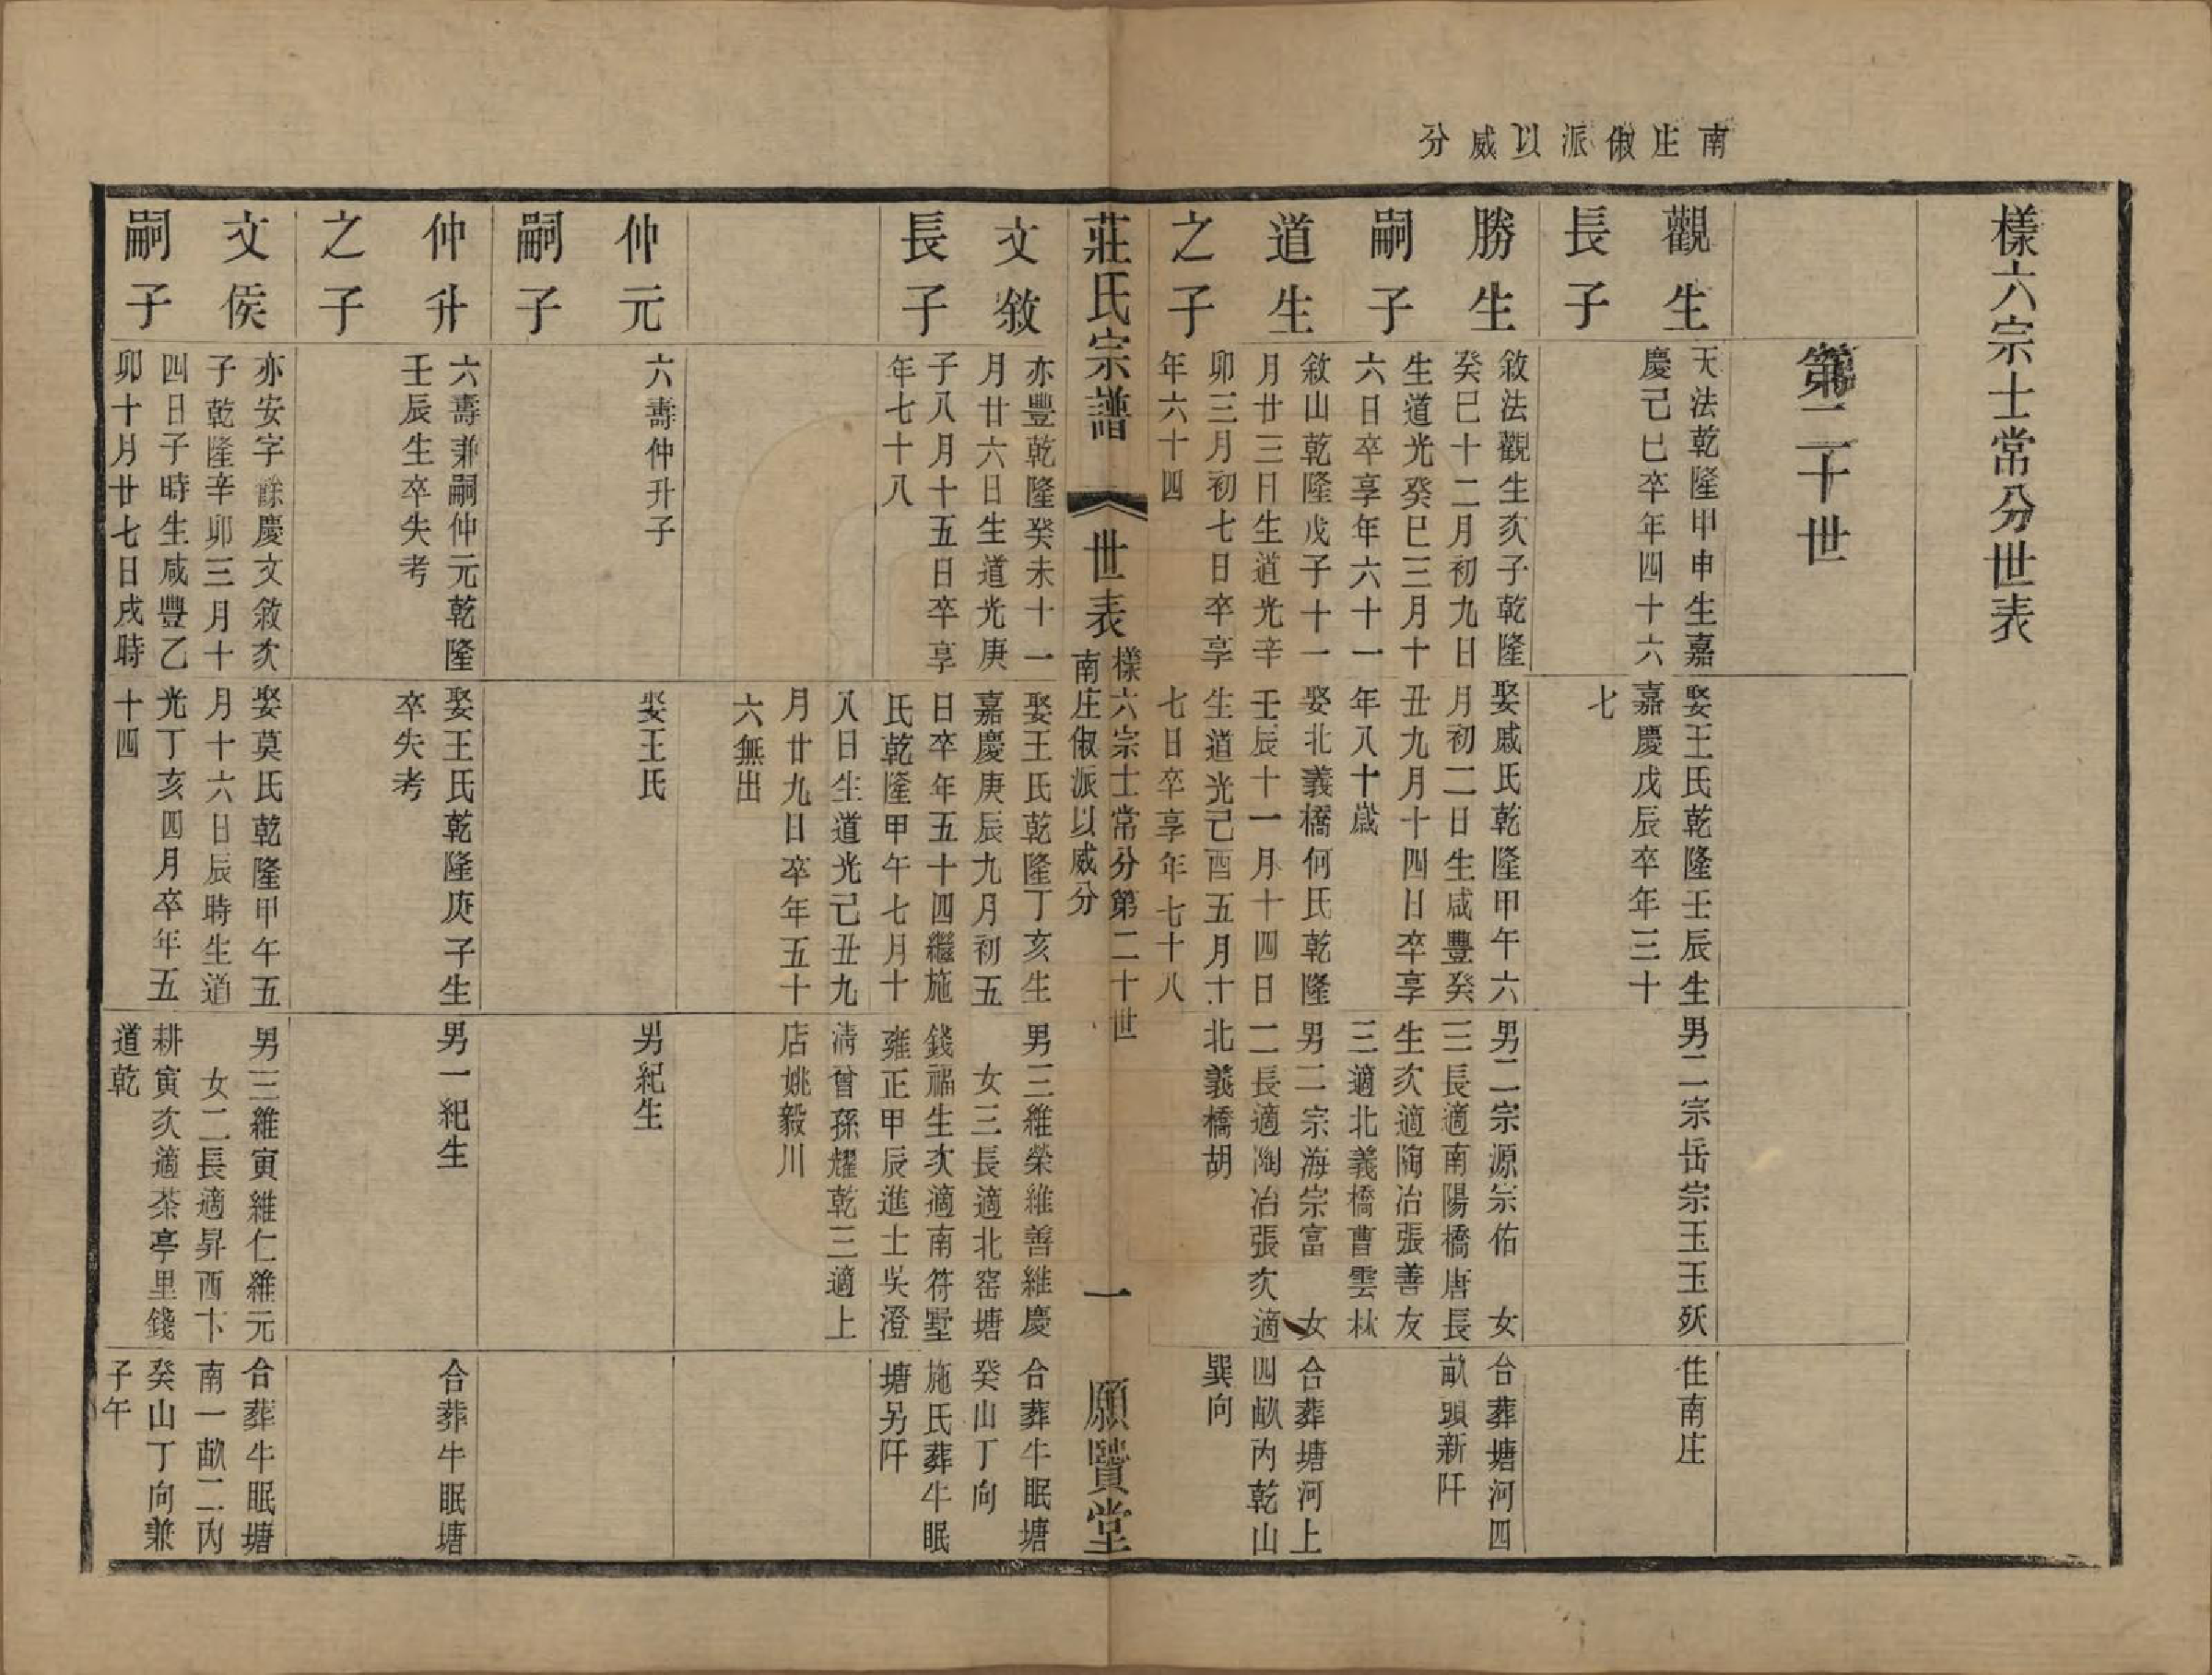 南庄俶派以威分
樣六宗士常分世表
第二十世
觀生
長子
天法乾隆甲申生嘉
慶己巳卒年四十六
娶王氏乾隆壬辰生
嘉慶戊辰卒年三十
七
男二宗岳宗玉玉殀
住南庄
勝生
嗣子
敘法觀生次子乾隆
癸巳十二月初九日
生道光癸巳三月十
六日卒享年六十一
娶戚氏乾隆甲午六
月初二日生咸豐癸
丑九月十四日卒享
年八十歲
男二宗源宗佑 女
三長適南陽橋唐長
生次適陶冶張善友
三適北義橋曹雲林
合葬塘河四
畝頭新阡
道生
之子
敘山乾隆戊子十一
月廿三日生道光辛
卯三月初七日卒享
年六十四
娶北義橋何氏乾隆
壬辰十一月十四日
生道光己酉五月十
七日卒享年七十八
男二宗海宗富 女
二長適陶冶張次適
北義橋胡
合葬塘河上
四畝丙乾山
巽向
莊氏宗譜
世表
樣六宗士常分第二十世
南庄俶派以威分
一
願贒堂
文敘
長子
亦豐乾隆癸未十一
月廿六日生道光庚
子八月十五日卒享
年七十八
娶王氏乾隆丁亥生
嘉慶庚辰九月初五
日卒年五十四繼施
氏乾隆甲午七月十
八日生道光己丑九
月廿九日卒年五十
六無出
男三維榮維善維慶
女三長適北窑塘
錢福生次適南符墅
雍正甲辰進士吳澄
清曾孫耀乾三適上
店姚毅川
合葬牛眠塘
癸山丁向
施氏葬牛眠
塘另阡
仲元
嗣子
六壽仲升子
娶王氏
男紀生
仲升
之子
六壽兼嗣仲元乾隆
壬辰生卒失考
娶王氏乾隆庚子生
卒失考
男一紀生
合葬牛眠塘
文侯
嗣子
亦安字餘慶文敘次
子乾隆辛卯三月十
四日子時生咸豐乙
卯十月廿七日戌時
娶莫氏乾隆甲午五
月十六日辰時生道
光丁亥四月卒年五
十四
男三維寅維仁維元
女二長適昇西卞
耕寅次適茶亭里錢
道乾
合葬牛眠塘
南一畝二丙
癸山丁向兼
子午